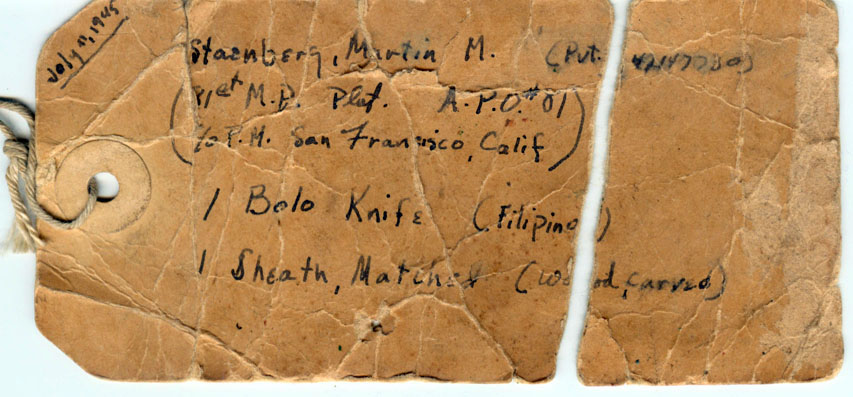 July , 1945
Staenberg, Martin M. (Pvt.
M.P. Plat. A.P.O.
c/o P.M. San Francisco, Calif)
1 Bolo Knife (Filipino)
1 Sheath, Matched (wood, carved)